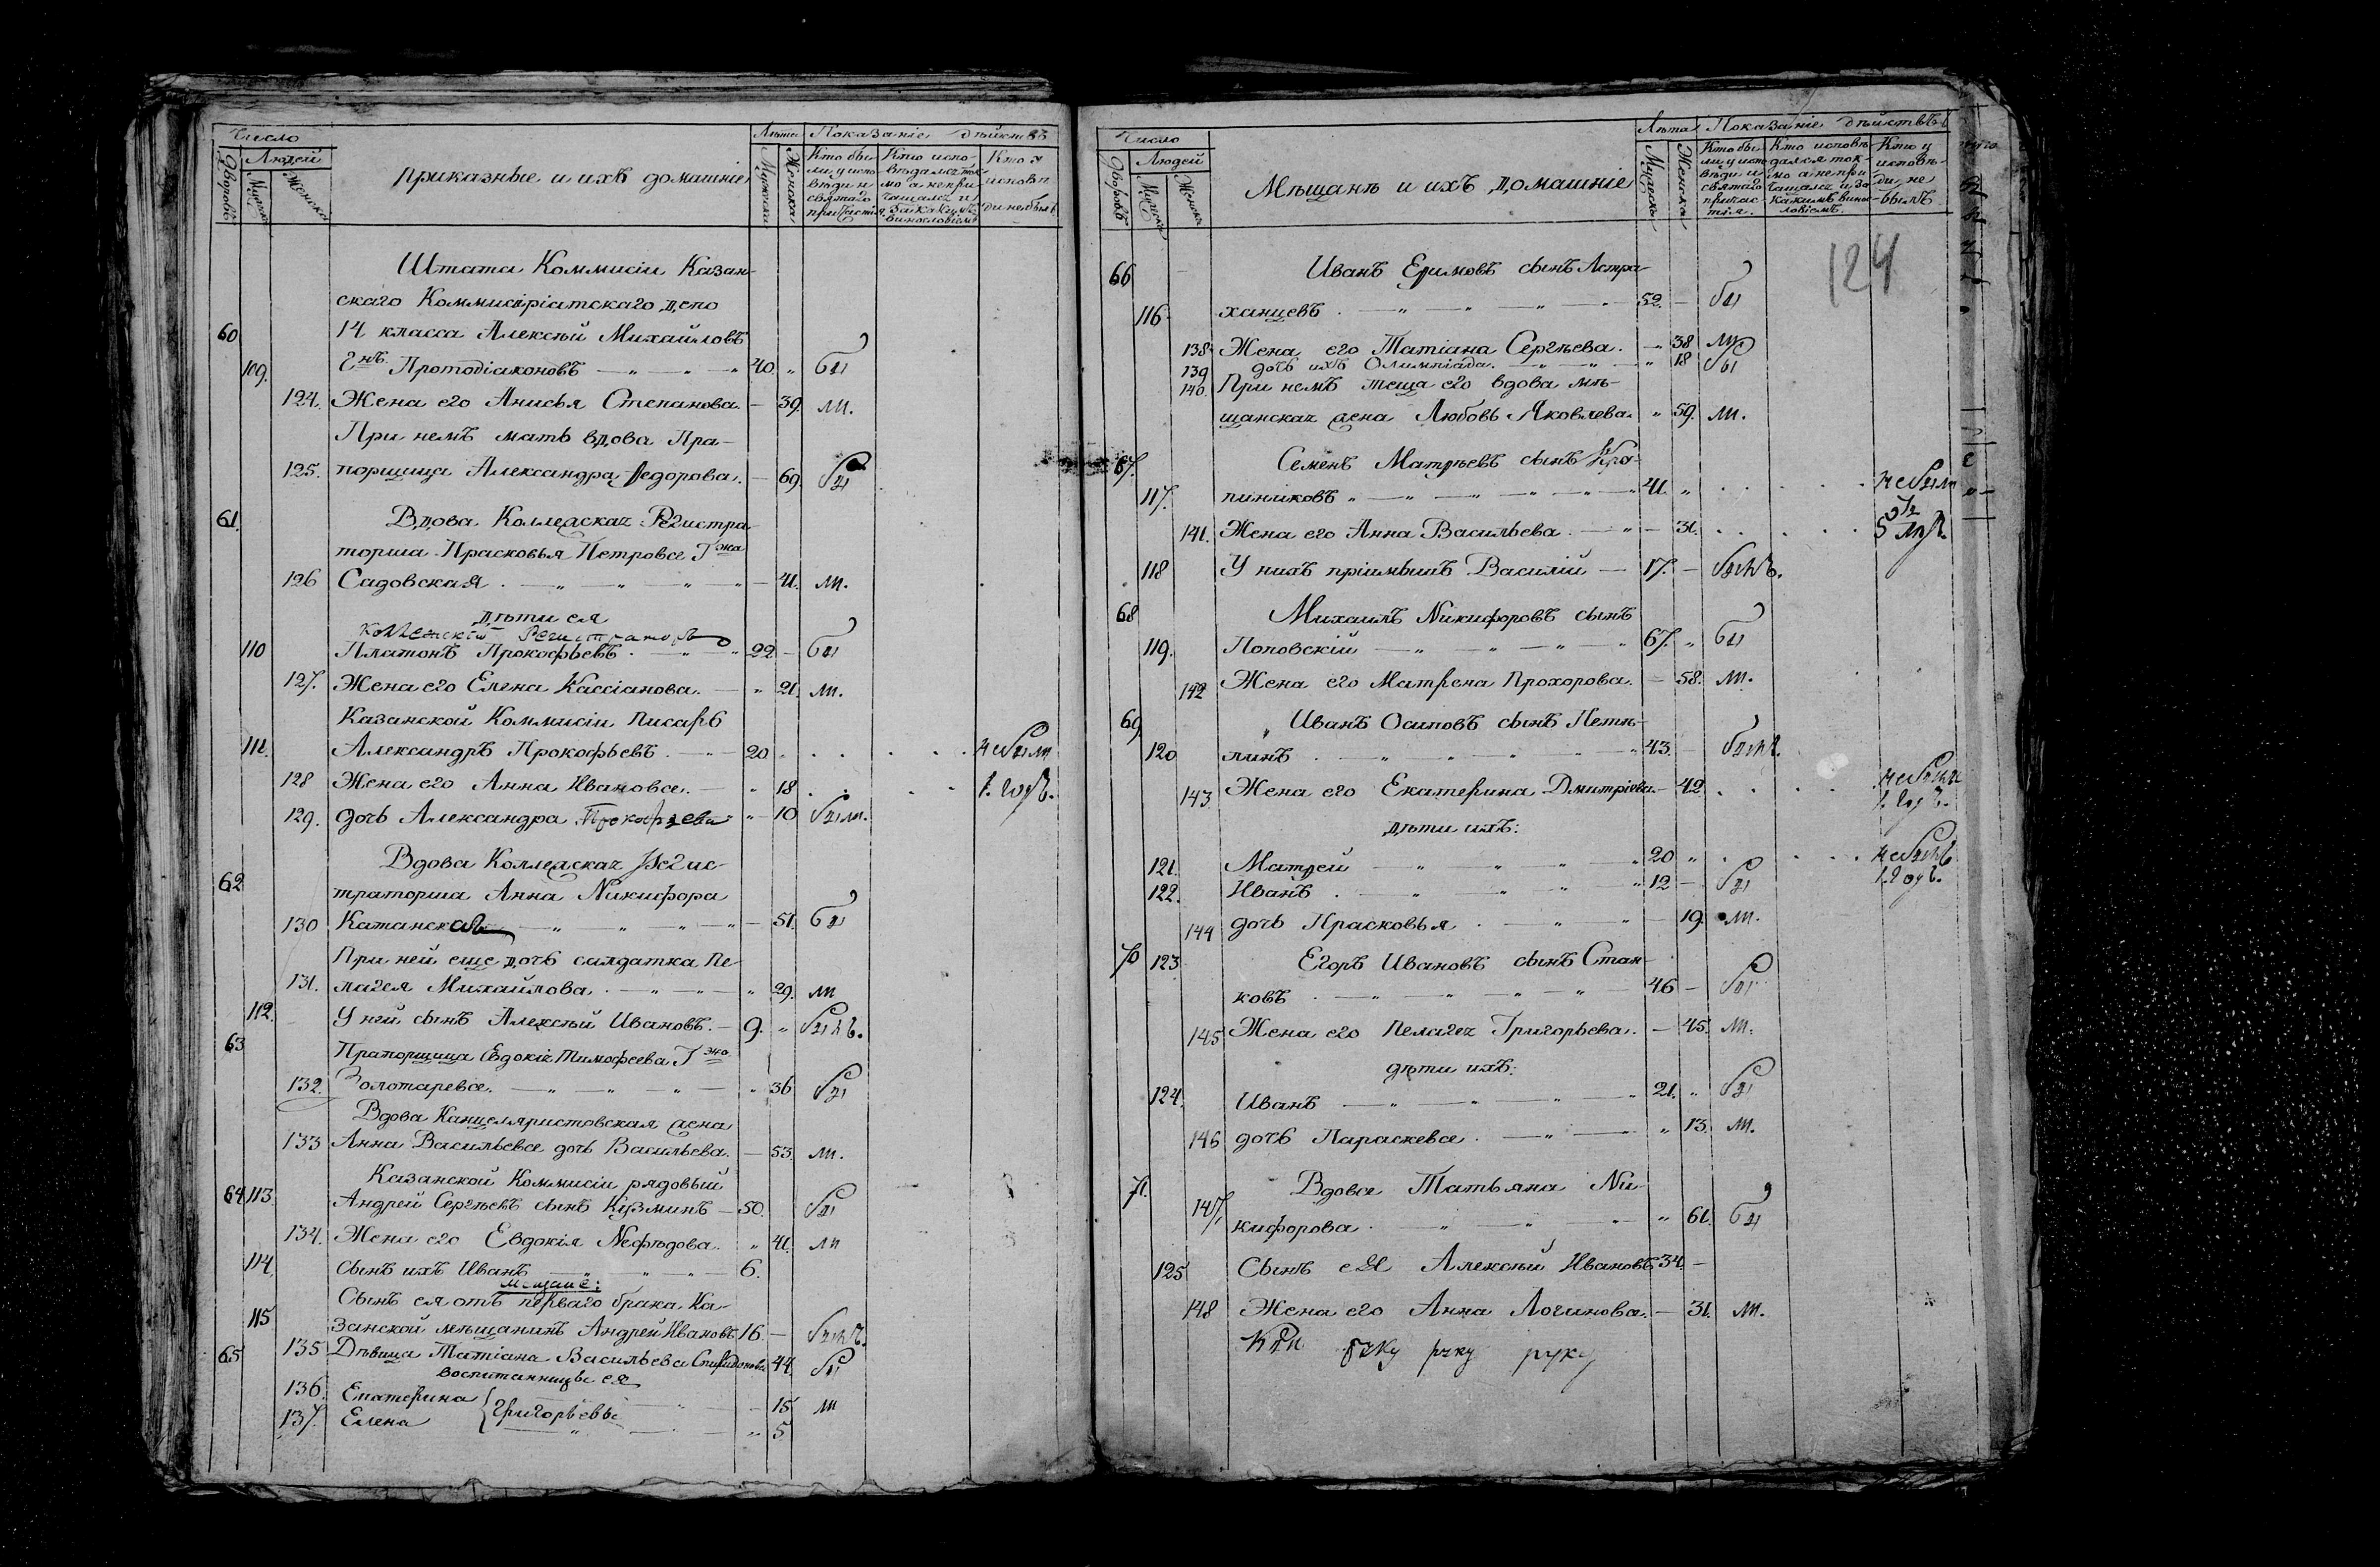 Число
Людей
Дворовъ
Мужеска
Женска
Приказные и ихъ домашніе
Лѣта
Мужеска
Женска
Показаніе дѣйствъ
Кто бы-
ли у испо-
вѣди и
святаго
причастія
Кто испо-
вѣдался ток-
мо а не при-
чащался и
за какимъ
винословіемъ
Кто у
исповѣ-
ди не былъ
Штата Коммисіи Казан-
скаго Коммисаріатскаго депо
60 14 класса Алексѣй Михайловъ
109. Гнъ Протодіаконовъ — „ — „ — „ 40. „ бы
124. Жена его Анисья Степанова. — 39. ли.
При немъ мать вдова Пра-
125. порщица Александра Федорова. — 69. бы
61. Вдова Коллежская Регистра-
торша Прасковья Петрова Гжа
126 Садовская . — „ — „ — „ — 41. ли.
дѣти ея
Коллежскій Регистраторъ
110 Платонъ Прокофьевъ . — „ — „ 22 — бы
127. Жена его Елена Кассіанова. — „ 21. ли.
Казанской Коммисіи писарь
111. Александръ Прокофьевъ . — „ — 20. . . . . . не были
128 Жена его Анна Иванова. — „ 18 . . . . 1. годъ.
129. дочь Александра Прокофьева „ — 10 были.
Вдова Коллежская Регис-
62 траторша Анна Никифора
130 Катанская — „ — „ — „ — 51. бы
При ней еще дочь салдатка Пе-
131. лагея Михайлова . — „ — „ — „ 29. ли
112. У ней сынъ Алексѣй Ивановъ. — 9. „ былъ.
63 Прапорщица Евдокія Тимофеева Гжа
132. Золотарева. — „ — „ — „ — „ 36 бы
Вдова Канцеляристовская жена
133 Анна Васильева дочь Васильева. — 53. ли.
Казанской Коммисіи рядовый
64 113. Андрей Сергѣевъ сынъ Кузминъ — 50. бы
134. Жена его Евдокія Нефѣдова. „ 41. ли
114. сынъ ихъ Иванъ — „ — „ — „ — 6.
мещане:
Сынъ ея отъ перваго брака Ка-
115 занской мѣщанинъ Андрей Ивановъ 16. — былъ.
65 135 Дѣвица Татіана Васильева Спиридонова 44. бы
воспитанницы ея
136. Екатерина { Григорьевы — 15 ли
137. Елена — „ — „ 5
Число
Людей
Дворовъ
Мужеска
Женска
Мѣщанѣ и ихъ домашніе
Лѣта
Мужеска
Женска
Показаніе дѣйствъ
Кто бы-
ли у испо-
вѣди и
святаго
причас-
тія.
Кто исповѣ-
дался ток-
мо а не при-
чащался и за
какимъ вино-
словіемъ.
Кто у
исповѣ-
ди не
былъ
124
66 Иванъ Ефимовъ сынъ Астра-
116. ханцевъ . — „ — „ — „ — 52. — бы
138. Жена его Татіана Сергѣева. — 38 ли
139 дочь ихъ Олимпіада. — „ — „ 18 бы
140. При немъ теща его вдова мѣ-
щанская жена Любовь Яковлева. „ 59. ли.
67. Семенъ Матфѣевъ сынъ Кра-
117. пиниковъ „ — „ — „ — „ — „ 41. „ . . . . . не были
141. Жена его Анна Васильева. — „ — 31. . . . . . 5 лѣтъ.
118 У нихъ пріимышъ Василій — 17. — былъ.
68 Михаилъ Никифоровъ сынъ
119. Поповскій — „ — „ — „ — „ 67. „ бы
142 Жена его Матрена Прохорова. — 58. ли.
69. Иванъ Осиповъ сынъ Петѣ-
120 линъ . — „ — „ — „ — „ 43. — былъ.
143. Жена его Екатерина Дмитріева. — 42 . . . . не была
1. годъ.
дѣти ихъ:
121. Матфей — „ — „ — „ — „ 20 „ . . . . не былъ
122. Иванъ . — „ — „ — „ — „ 12 — бы 1. годъ.
144 дочь Прасковья . — „ — „ — 19. ли.
70 123. Егоръ Ивановъ сынъ Стан-
ковъ . — „ — „ — „ — „ — 46 — бы
145 Жена его Пелагея Григорьева. — 45. ли.
дѣти ихъ:
124. Иванъ — „ — „ — „ — „ 21. „ бы
146 дочь Параскева . — „ — „ 13. ли.
71. Вдова Татьяна Ни-
147. кифорова . — „ — „ — „ — „ 61. бы
125 Сынъ ея Алексѣй Ивановъ 34. —
148 Жена его Анна Логинова. — 31. ли.
руку